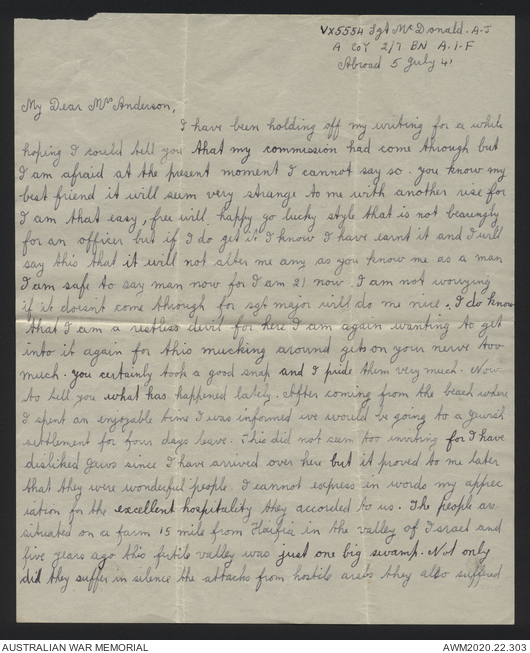 VX5554 Sgt McDonald. A-J
A Coy 2/7 BN A.I.F
Abroad 5 July 41
My Dear Mrs Anderson,
I have been holding off my writing for a while
hoping I could tell you that my commission had come through but
I am afraid at the present moment I cannot say so. you know my
best friend it will seem very strange to me with another rise for
I am that easy, free will happy go lucky style that is not bearingly
for an officer but if I do get it I know I have earnt it and I will
say this that it will not alter me any as you know me as a man
I am safe to say man now for I am 21 now. I am not worrying
if it doesn't come through for sgt major will do me nice. I do know
that I am a restless devil for here I am again wanting to get
into it again for this mucking around gets on your nerve too
much. you certainly took a good snap and I pride them very much. Now
to tell you what has happened lately. After coming from the beach where
I spent an enjoyable time I was informed we would be going to a Jewish
settlement for four days leave. This did not seem too inviting for I have
disliked Jews since I have arrived over here but it proved to me later
that they were wonderful people. I cannot express in words my apprec
iation for the excellent hospitality they accorded to us. The people are
situated on a farm 15 mile from Haifia in the valley of Israel and
five years ago this fertile valley was just one big swamp. Not only
did they suffer in silence the attacks from hostile arabs they also suffered
AUSTRALIAN WAR MEMORIAL
AWM2020.22.303